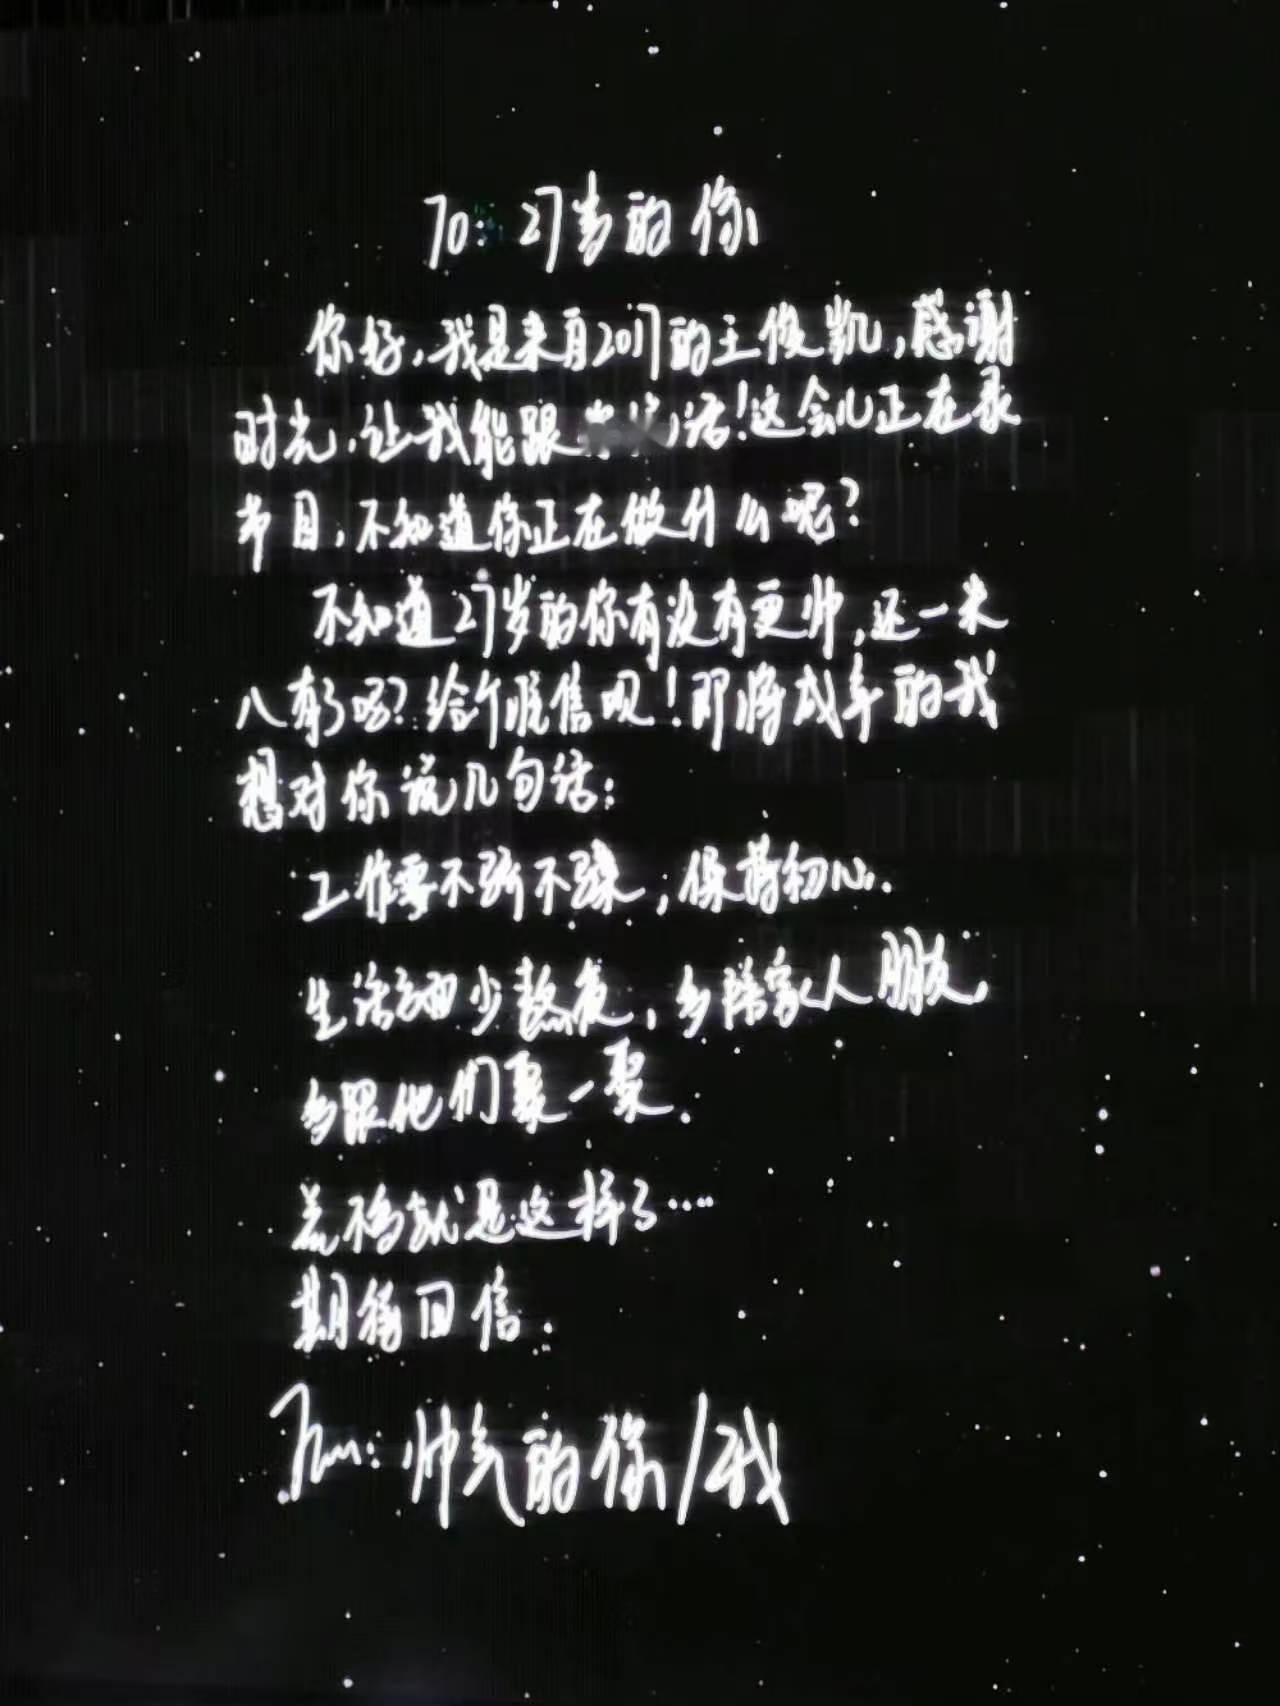 To: 27岁的你
你好,我是来自2017的王俊凯,感谢
时光,让我能跟 话!这会儿正在录
节目,不知道你正在做什么呢?
不知道27岁的你有没有更帅,还一米
八有了吗?给个脱信呗!即将成年的我
想对你说几句话:
工作要不骄不躁,保持初心.
生活要少熬夜,多陪家人朋友,
多跟他们聚一聚.
差不多就是这样了……
期待回信.
From:帅气的你/我